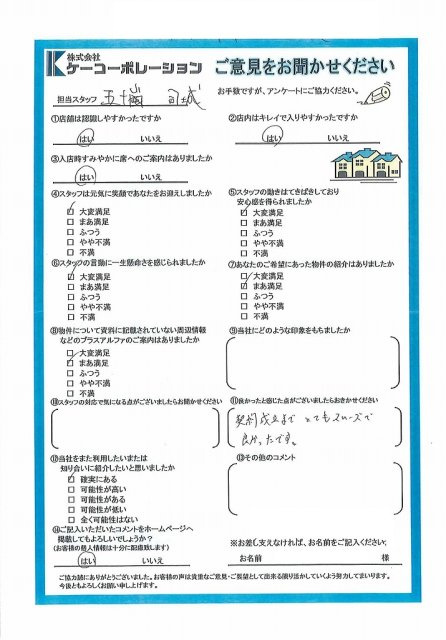 株式会社
ケーコーポレーション
ご意見をお聞かせください
担当スタッフ 五十嵐
お手数ですが、アンケートにご協力ください。
①店舗は認識しやすかったですか
はい いいえ
②店内はキレイで入りやすかったですか
はい いいえ
③入店時すみやかに席へのご案内はありましたか
はい いいえ
④スタッフは元気に笑顔であなたをお迎えしましたか
大変満足
まあ満足
ふつう
やや不満
不満
⑤スタッフの動きはてきぱきしており
安心感を得られましたか
大変満足
まあ満足
ふつう
やや不満
不満
⑥スタッフの言動に一生懸命さを感じられましたか
大変満足
まあ満足
ふつう
やや不満
不満
⑦あなたのご希望にあった物件の紹介はありましたか
大変満足
まあ満足
ふつう
やや不満
不満
⑧物件について資料に記載されていない周辺情報
などのプラスアルファのご案内はありましたか
大変満足
まあ満足
ふつう
やや不満
不満
⑨当社にどのような印象をもちましたか
⑩スタッフの対応で気になる点がございましたらお聞かせください
⑪良かったと感じた点がございましたらおきかせください
契約成立まで とてもスムーズで
良かったです。
⑫当社をまた利用したいまたは
知り合いに紹介したいと思いましたか
確実にある
可能性が高い
可能性がある
可能性が低い
全く可能性はない
⑬その他のコメント
⑭ご記入いただいたコメントをホームページへ
掲載してもよろしいでしょうか?
(お客様の個人情報は十分に配慮致します)
はい いいえ
※お差し支えなければ、お名前をご記入ください。
お名前 様
ご協力誠にありがとうございました。お客様の声は貴重なご意見・ご要望として出来る限り活かしていくよう努力してまいります。
今後ともよろしくお願い申し上げます。